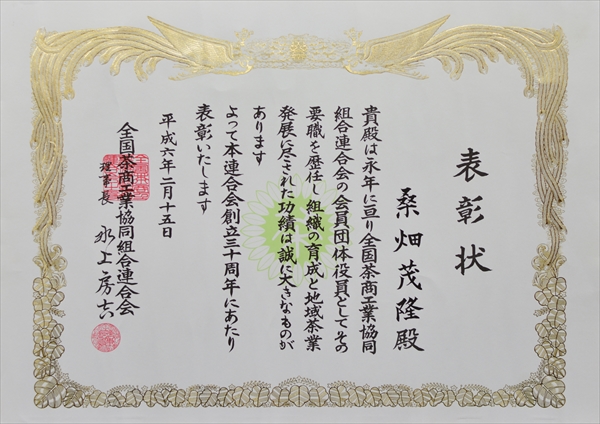 表彰状
桑畑茂隆殿
貴殿は永年に亘り全国茶商工業協同
組合連合会の会員団体役員としてその
要職を歴任し組織の育成と地域茶業
発展に尽された功績は誠に大きなものが
あります
よって本連合会創立三十周年にあたり
表彰いたします
平成六年二月十五日
全国茶商工業協同組合連合会
理事長 永上房吉